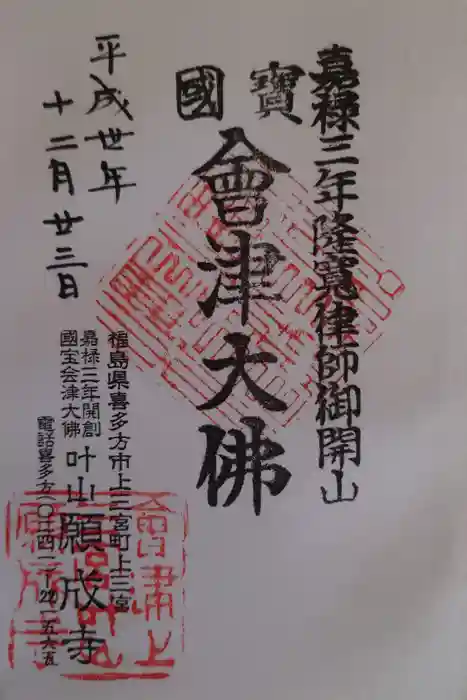 嘉禄三年隆寛律師御開山
國寶
會津大佛
平成丗年
十二月廿三日
福島県喜多方市上三宮町上三宮
嘉禄三年開創
國宝会津大佛
叶山願成寺
電話喜多方(〇二四一)22一五六五
會津上
願成寺